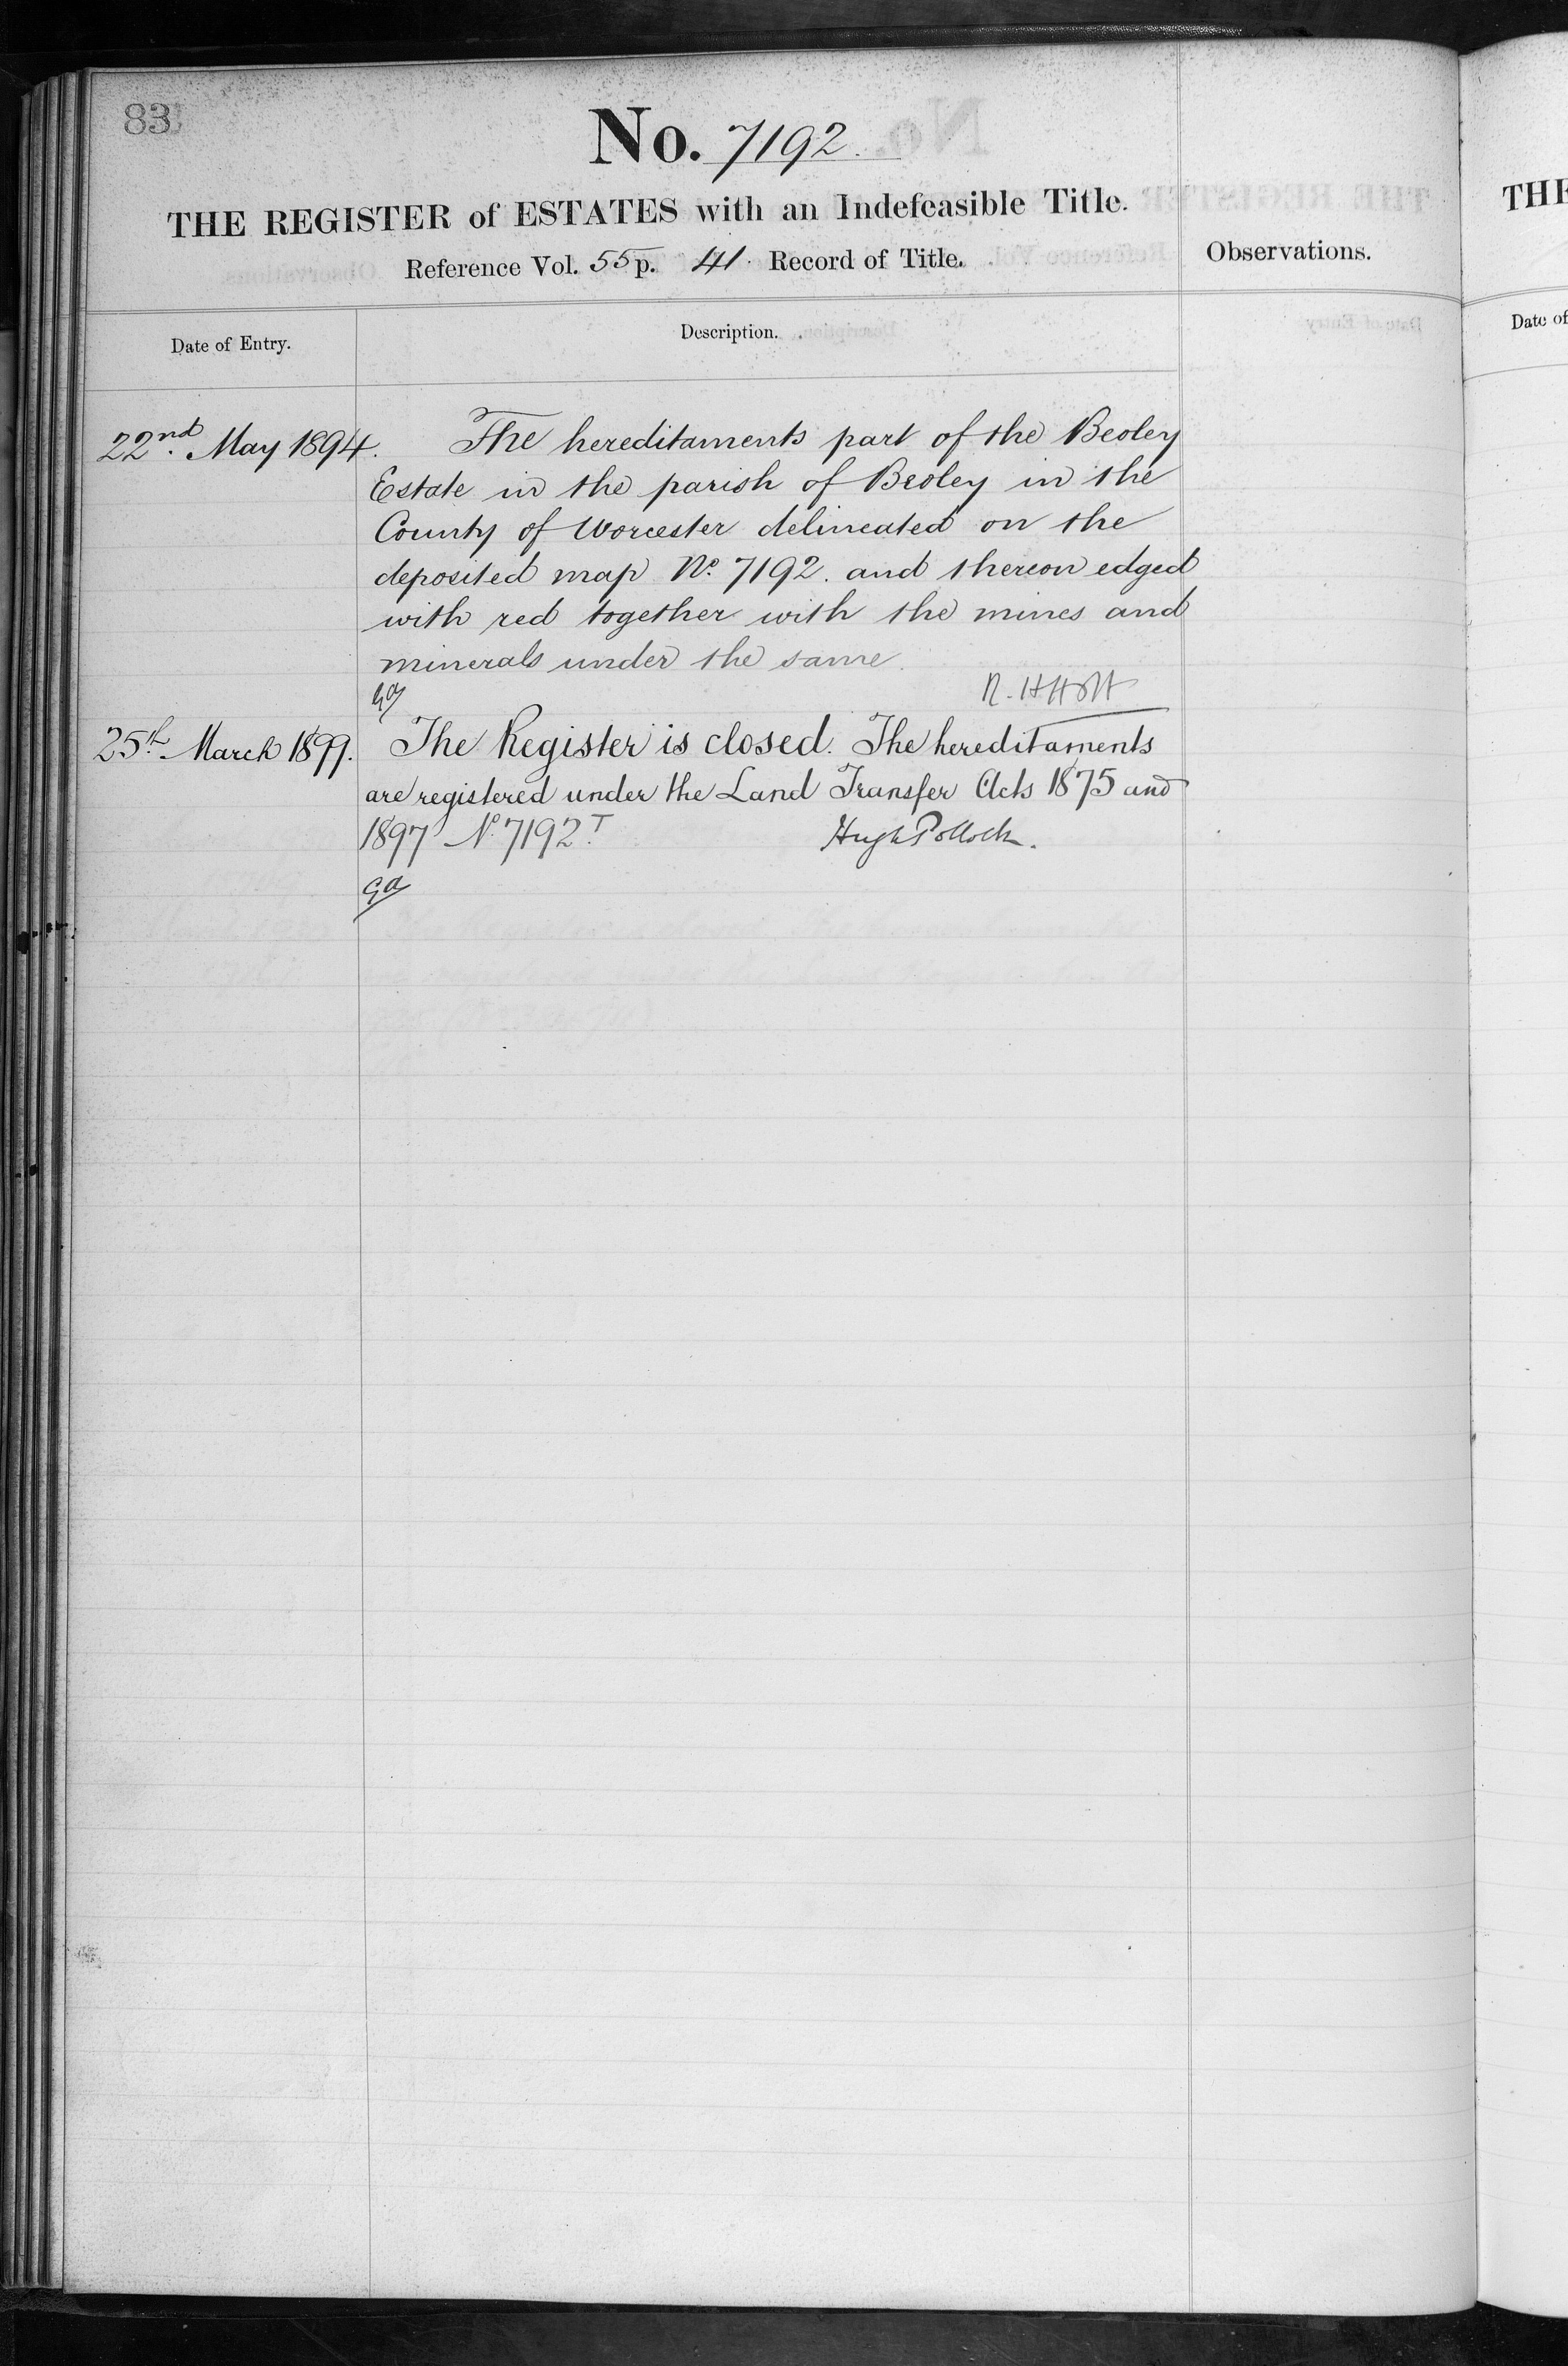 83
No. 7192.
THE REGISTER of ESTATES with an Indefeasible Title.
Reference Vol. 55 p. 41. Record of Title.
Observations.
Date of Entry.
Description.
22nd May 1894.
The hereditaments part of the Beoley
Estate in the parish of Beoley in the
County of Worcester delineated on the
deposited map No. 7192. and thereon edged
with red together with the mines and
minerals under the same.
R. H Holt
25th March 1899.
The Register is closed. The hereditaments
are registered under the Land Transfer Acts 1875 and
1897 No. 7192T.
Hugh Pollock.
ga
THE
Date of